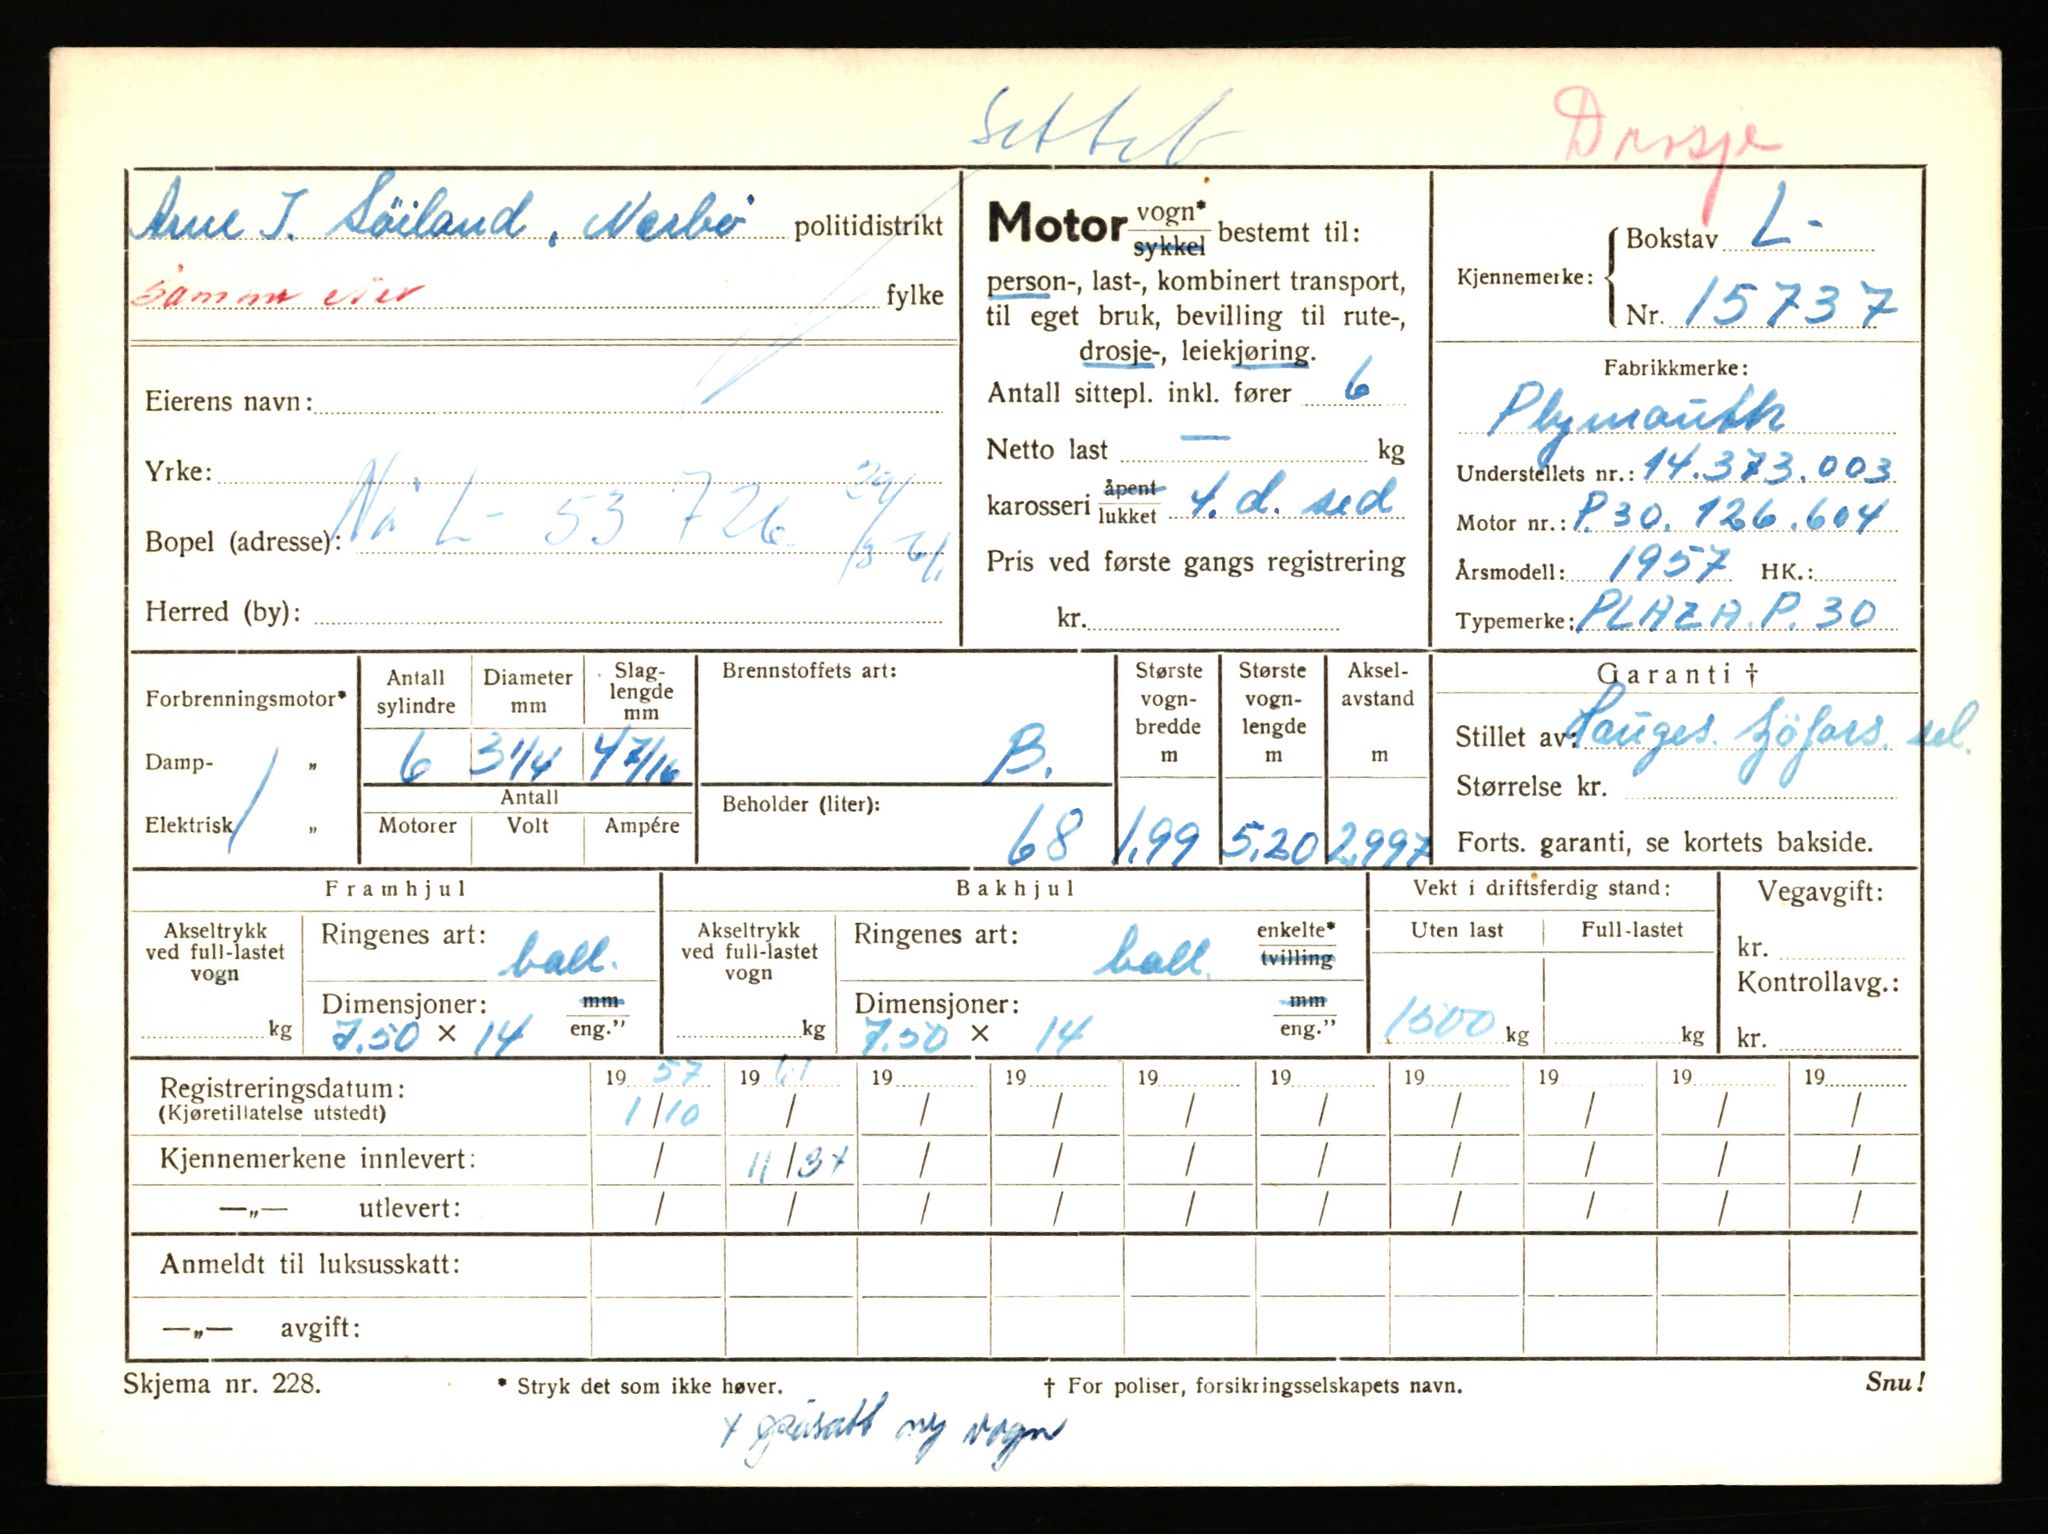 settet
Drosje
Arne I. Söiland, Nærbö politidistrikt
samme eier fylke
Eierens navn:
Yrke:
Nå L- 53726. 29/3-61.
Bopel (adresse):
Herred (by):
Motor vogn* sykkel bestemt til:
person-, last-, kombinert transport,
til eget bruk, bevilling til rute-,
drosje-, leiekjøring.
Antall sittepl. inkl. fører 6
Netto last — kg
karosseri åpent lukket 4. d. sed
Pris ved første gangs registrering
kr.
Kjennemerke: Bokstav L-
Nr. 15737
Fabrikkmerke:
Plymouth
Understellets nr.: 14.373.003
Motor nr.: P.30.126.604
Årsmodell: 1957 HK.:
Typemerke: PLAZA. P. 30
Forbrenningsmotor*
Damp- „
Elektrisk „
Antall sylindre Diameter mm Slag-lengde mm
6 3 1/4 4 7/16
Antall
Motorer Volt Ampére
Brennstoffets art:
B.
Beholder (liter):
68
Største vogn-bredde m
1,99
Største vogn-lengde m
5.20
Aksel-avstand m
2,997
Garanti †
Stillet av: Hauges. Sjöfors. sel.
Størrelse kr.
Forts. garanti, se kortets bakside.
Framhjul
Akseltrykk ved full-lastet vogn
kg
Ringenes art: ball.
Dimensjoner: mm
7.50 × 14 eng.”
Bakhjul
Akseltrykk ved full-lastet vogn
kg
Ringenes art: ball. enkelte* tvilling
Dimensjoner: mm
7.50 × 14 eng.”
Vekt i driftsferdig stand:
Uten last Full-lastet
1500 kg kg
Vegavgift:
kr.
Kontrollavg.:
kr.
Registreringsdatum: 19 57 19 61 19 19 19 19 19 19 19 19
(Kjøretillatelse utstedt) 1/10 / / / / / / / / /
Kjennemerkene innlevert: / 11/3+ / / / / / / / /
—„— utlevert: / / / / / / / / / /
Anmeldt til luksusskatt:
—„— avgift:
Skjema nr. 228. * Stryk det som ikke høver. † For poliser, forsikringsselskapets navn. Snu!
+ påsatt ny vogn